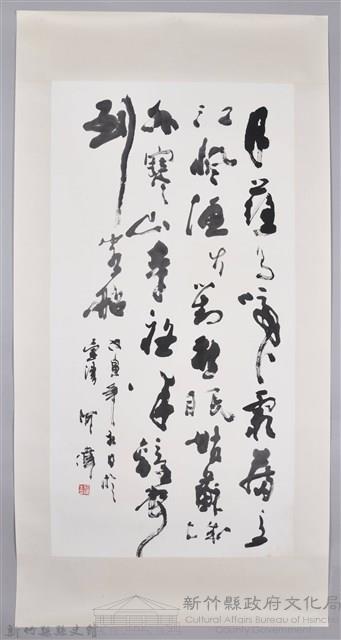 月落烏啼霜滿天
江楓漁火對愁眠姑蘇城
外寒山寺夜半鐘聲
到客船
戊寅年秋日於
臺灣
新竹縣政府文化局
Cultural Affairs Bureau of Hsinchu
County Government
新竹縣縣史館